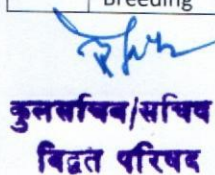 Breeding
कुलसचिव/सचिव
विद्वत परिषद